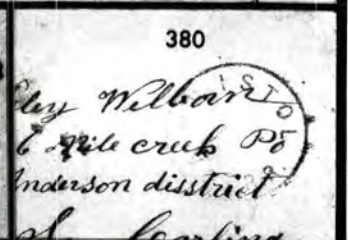 380
ley Welborn
6 Mile creek Po
Anderson disstrict
So Carlina